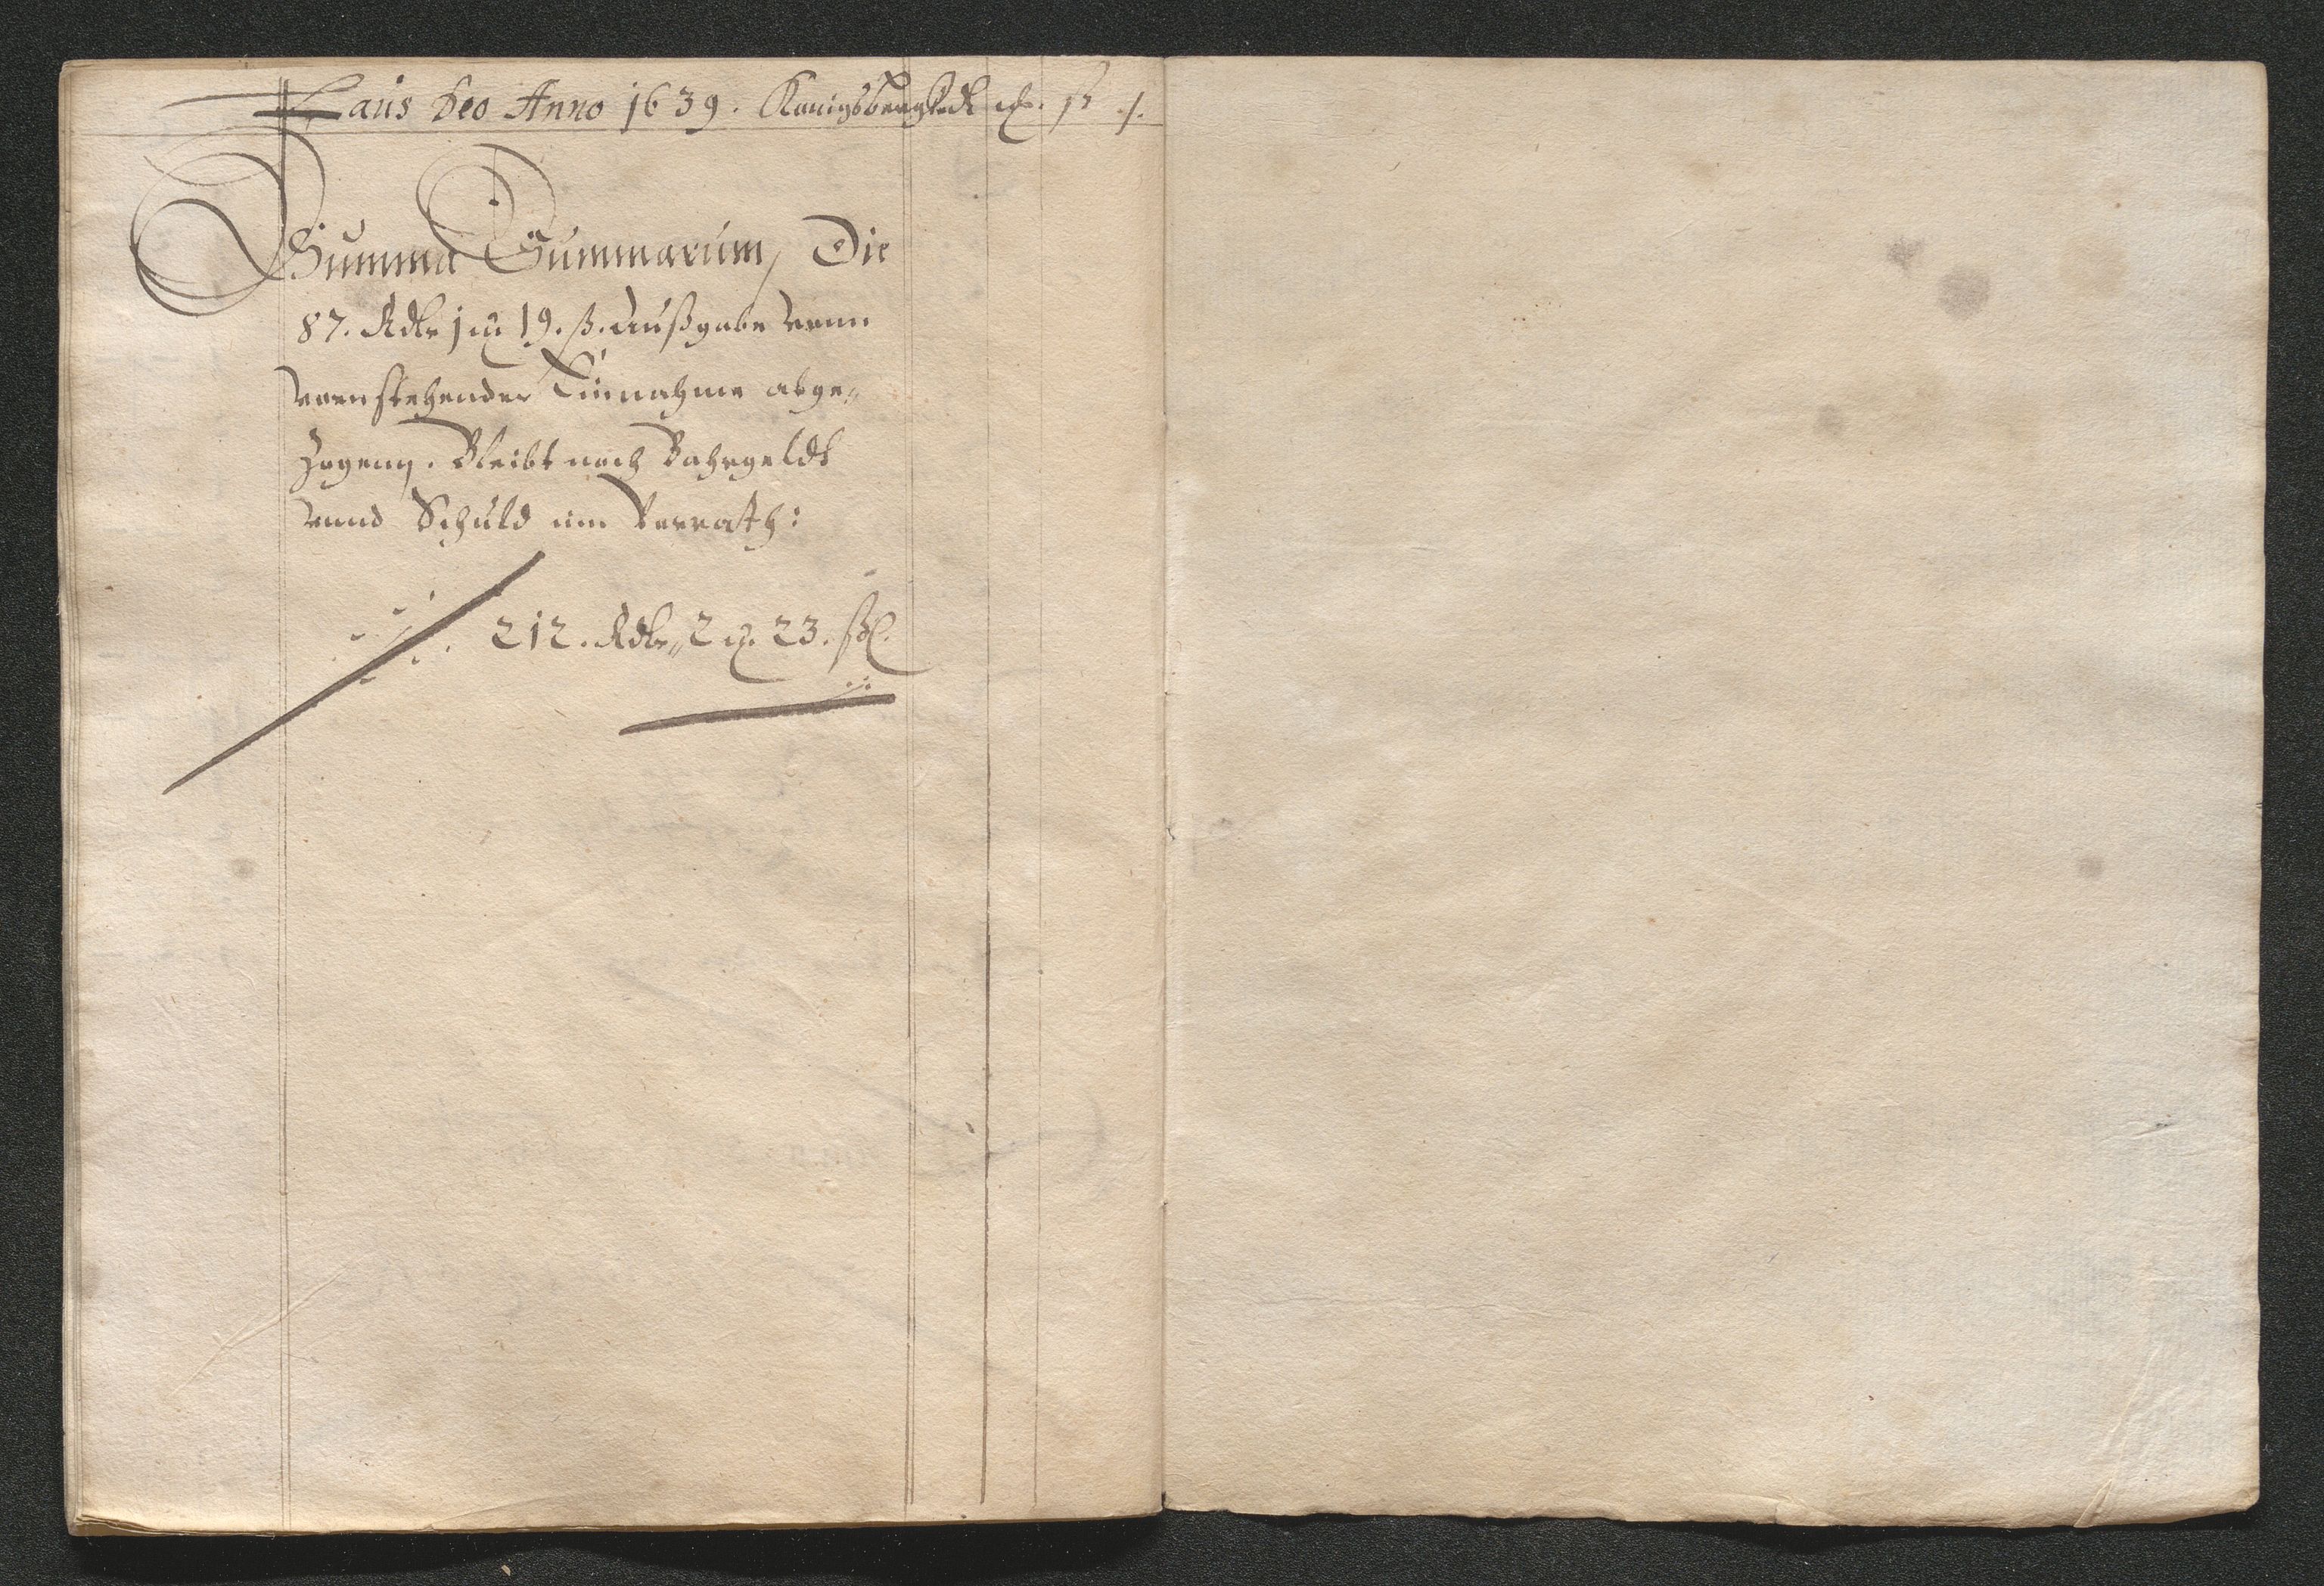 Laus Deo Anno 1639. Konigsbergk Rdl. ß ₰.
Summa Summarum, Die
87. Rdlr 1 19. ß. Außgabe vonn
vorenstehender Einnahme abge„
zogenn. Bleibt noch Bahrgeldt
unnd Schuld im Vorrath:
212. Rdlr„ 2 23. ßl.